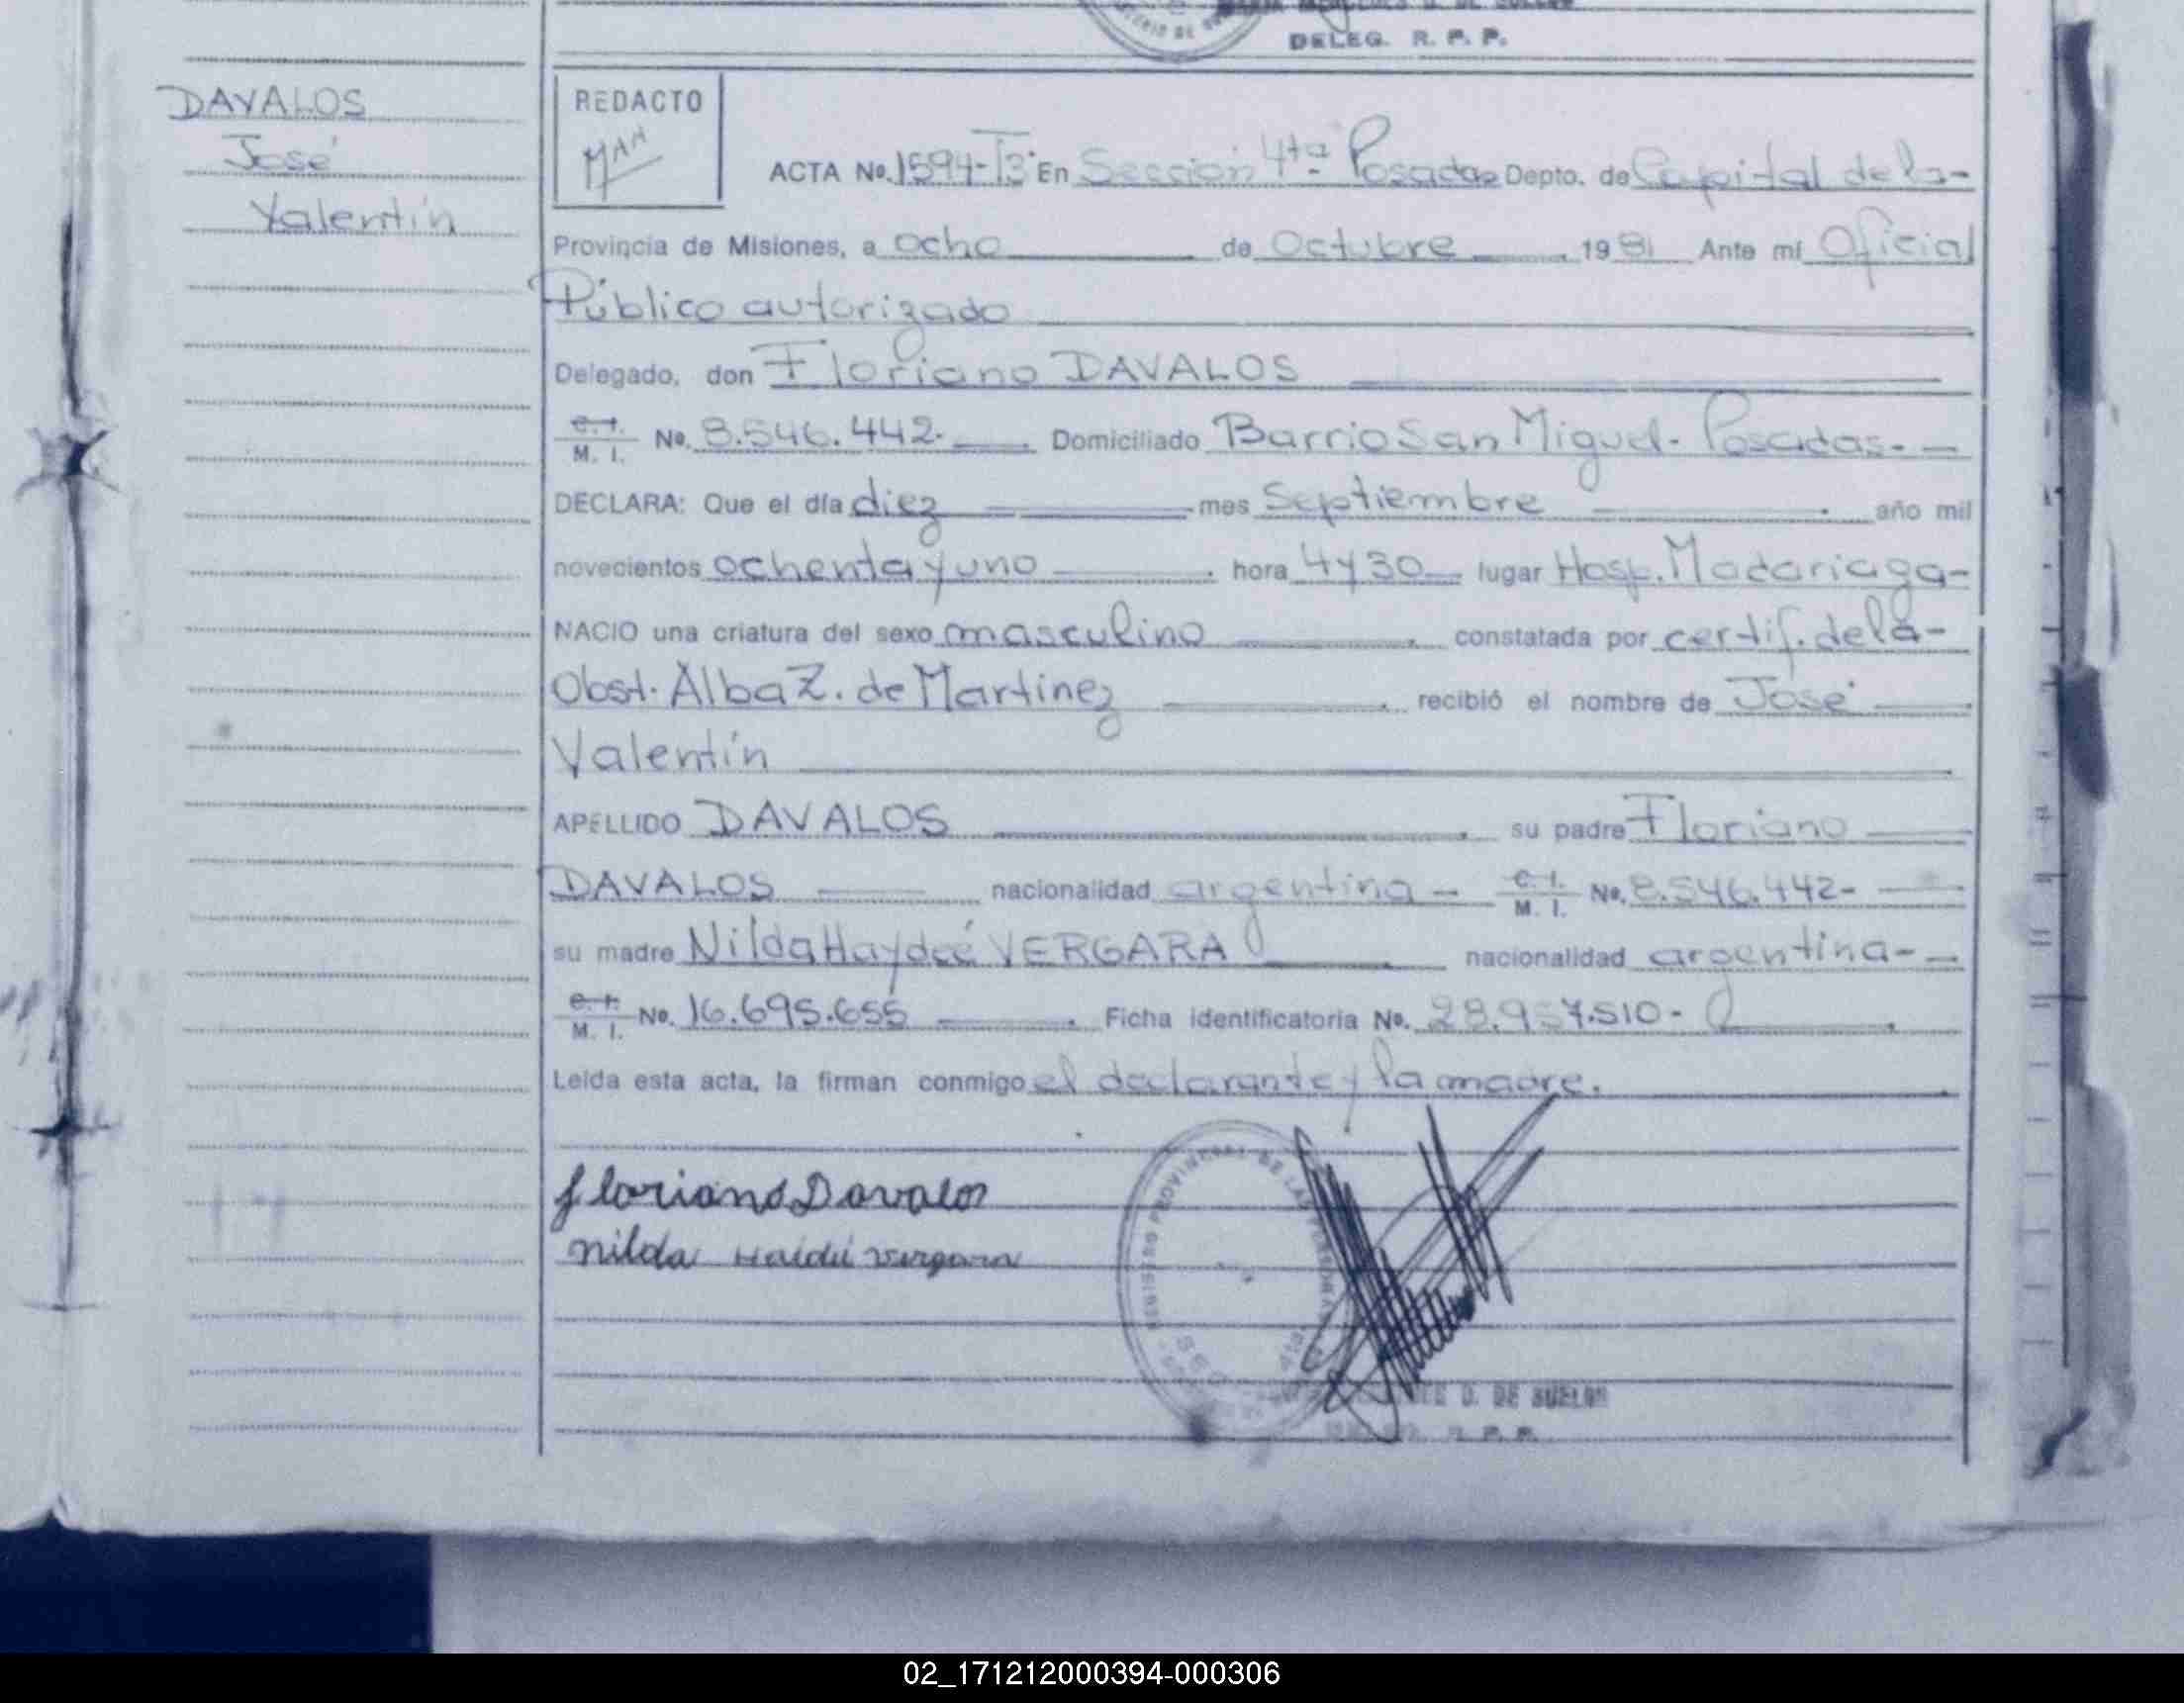 DELEG. R. P. P.
DAVALOS
José
Valentín
REDACTO
ACTA No. 1594-T3° En Sección 4ta Posadas Depto. de Capital de la-
Provincia de Misiones, a ocho de Octubre 1981 Ante mí Oficial
Público autorizado
Delegado, don Floriano DAVALOS
C. I.
M. I. No. 8.546.442. Domiciliado Barrio San Miguel- Posadas-
DECLARA: Que el día diez mes Septiembre año mil
novecientos ochenta y uno hora 4 y 30 lugar Hosp. Madariaga-
NACIO una criatura del sexo masculino constatada por certif. de la-
Obst. Alba Z. de Martinez recibió el nombre de José
Valentín
APELLIDO DAVALOS su padre Floriano
DAVALOS nacionalidad argentina - C. I.
M. I. No. 8.546.442-
su madre Nilda Haydeé VERGARA nacionalidad argentina-
C. I.
M. I. No. 16.695.655 Ficha identificatoria No. 28.957.510-
Leída esta acta, la firman conmigo el declarante y la madre.
Floriano Davalos
Nilda Haideé Vergara
REGISTRO PROVINCIAL DE LAS PERSONAS
D. DE SUELDO
R. P. P.
02_171212000394-000306